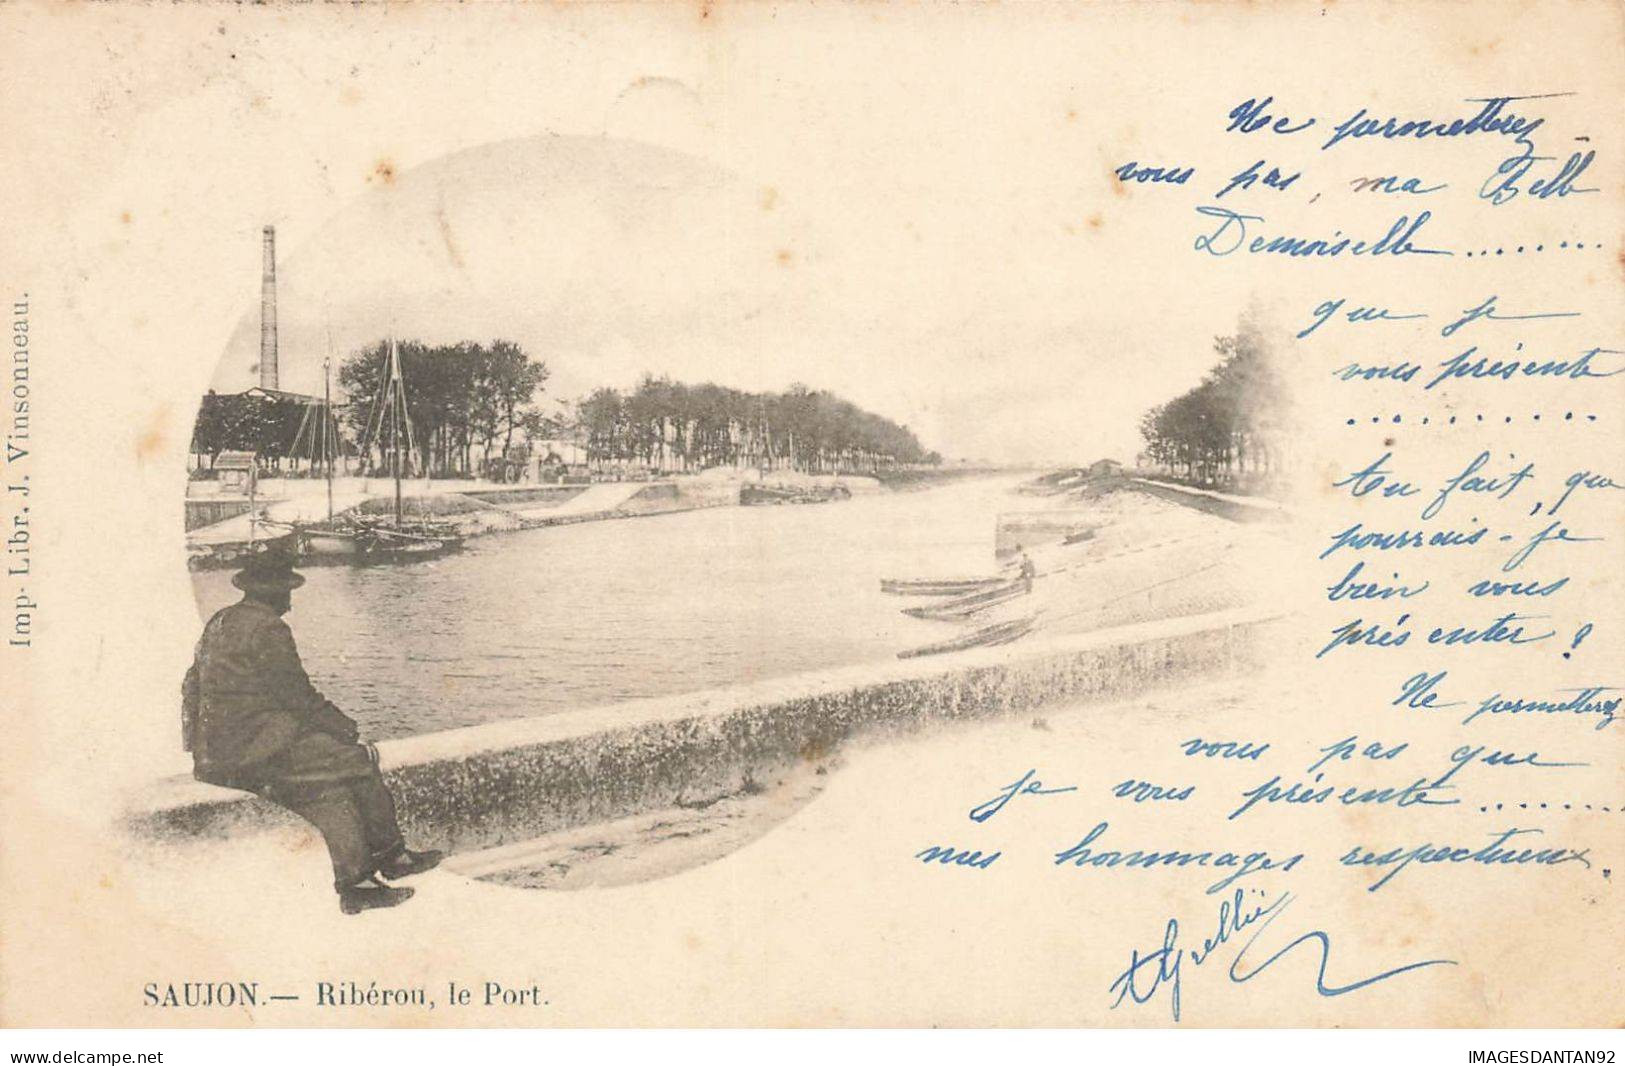 Ne permetterez-
vous pas, ma Belle
Demoiselle ........
que je
vous présente
..........
Au fait, que
pourrais-je
bien vous
présenter ?
Ne permetterez
vous pas que
je vous présente ........
mes hommages respectueux.
Imp. Libr. J. Vinsonneau.
SAUJON.— Ribérou, le Port.
delcampe.net
IMAGESDANTAN92